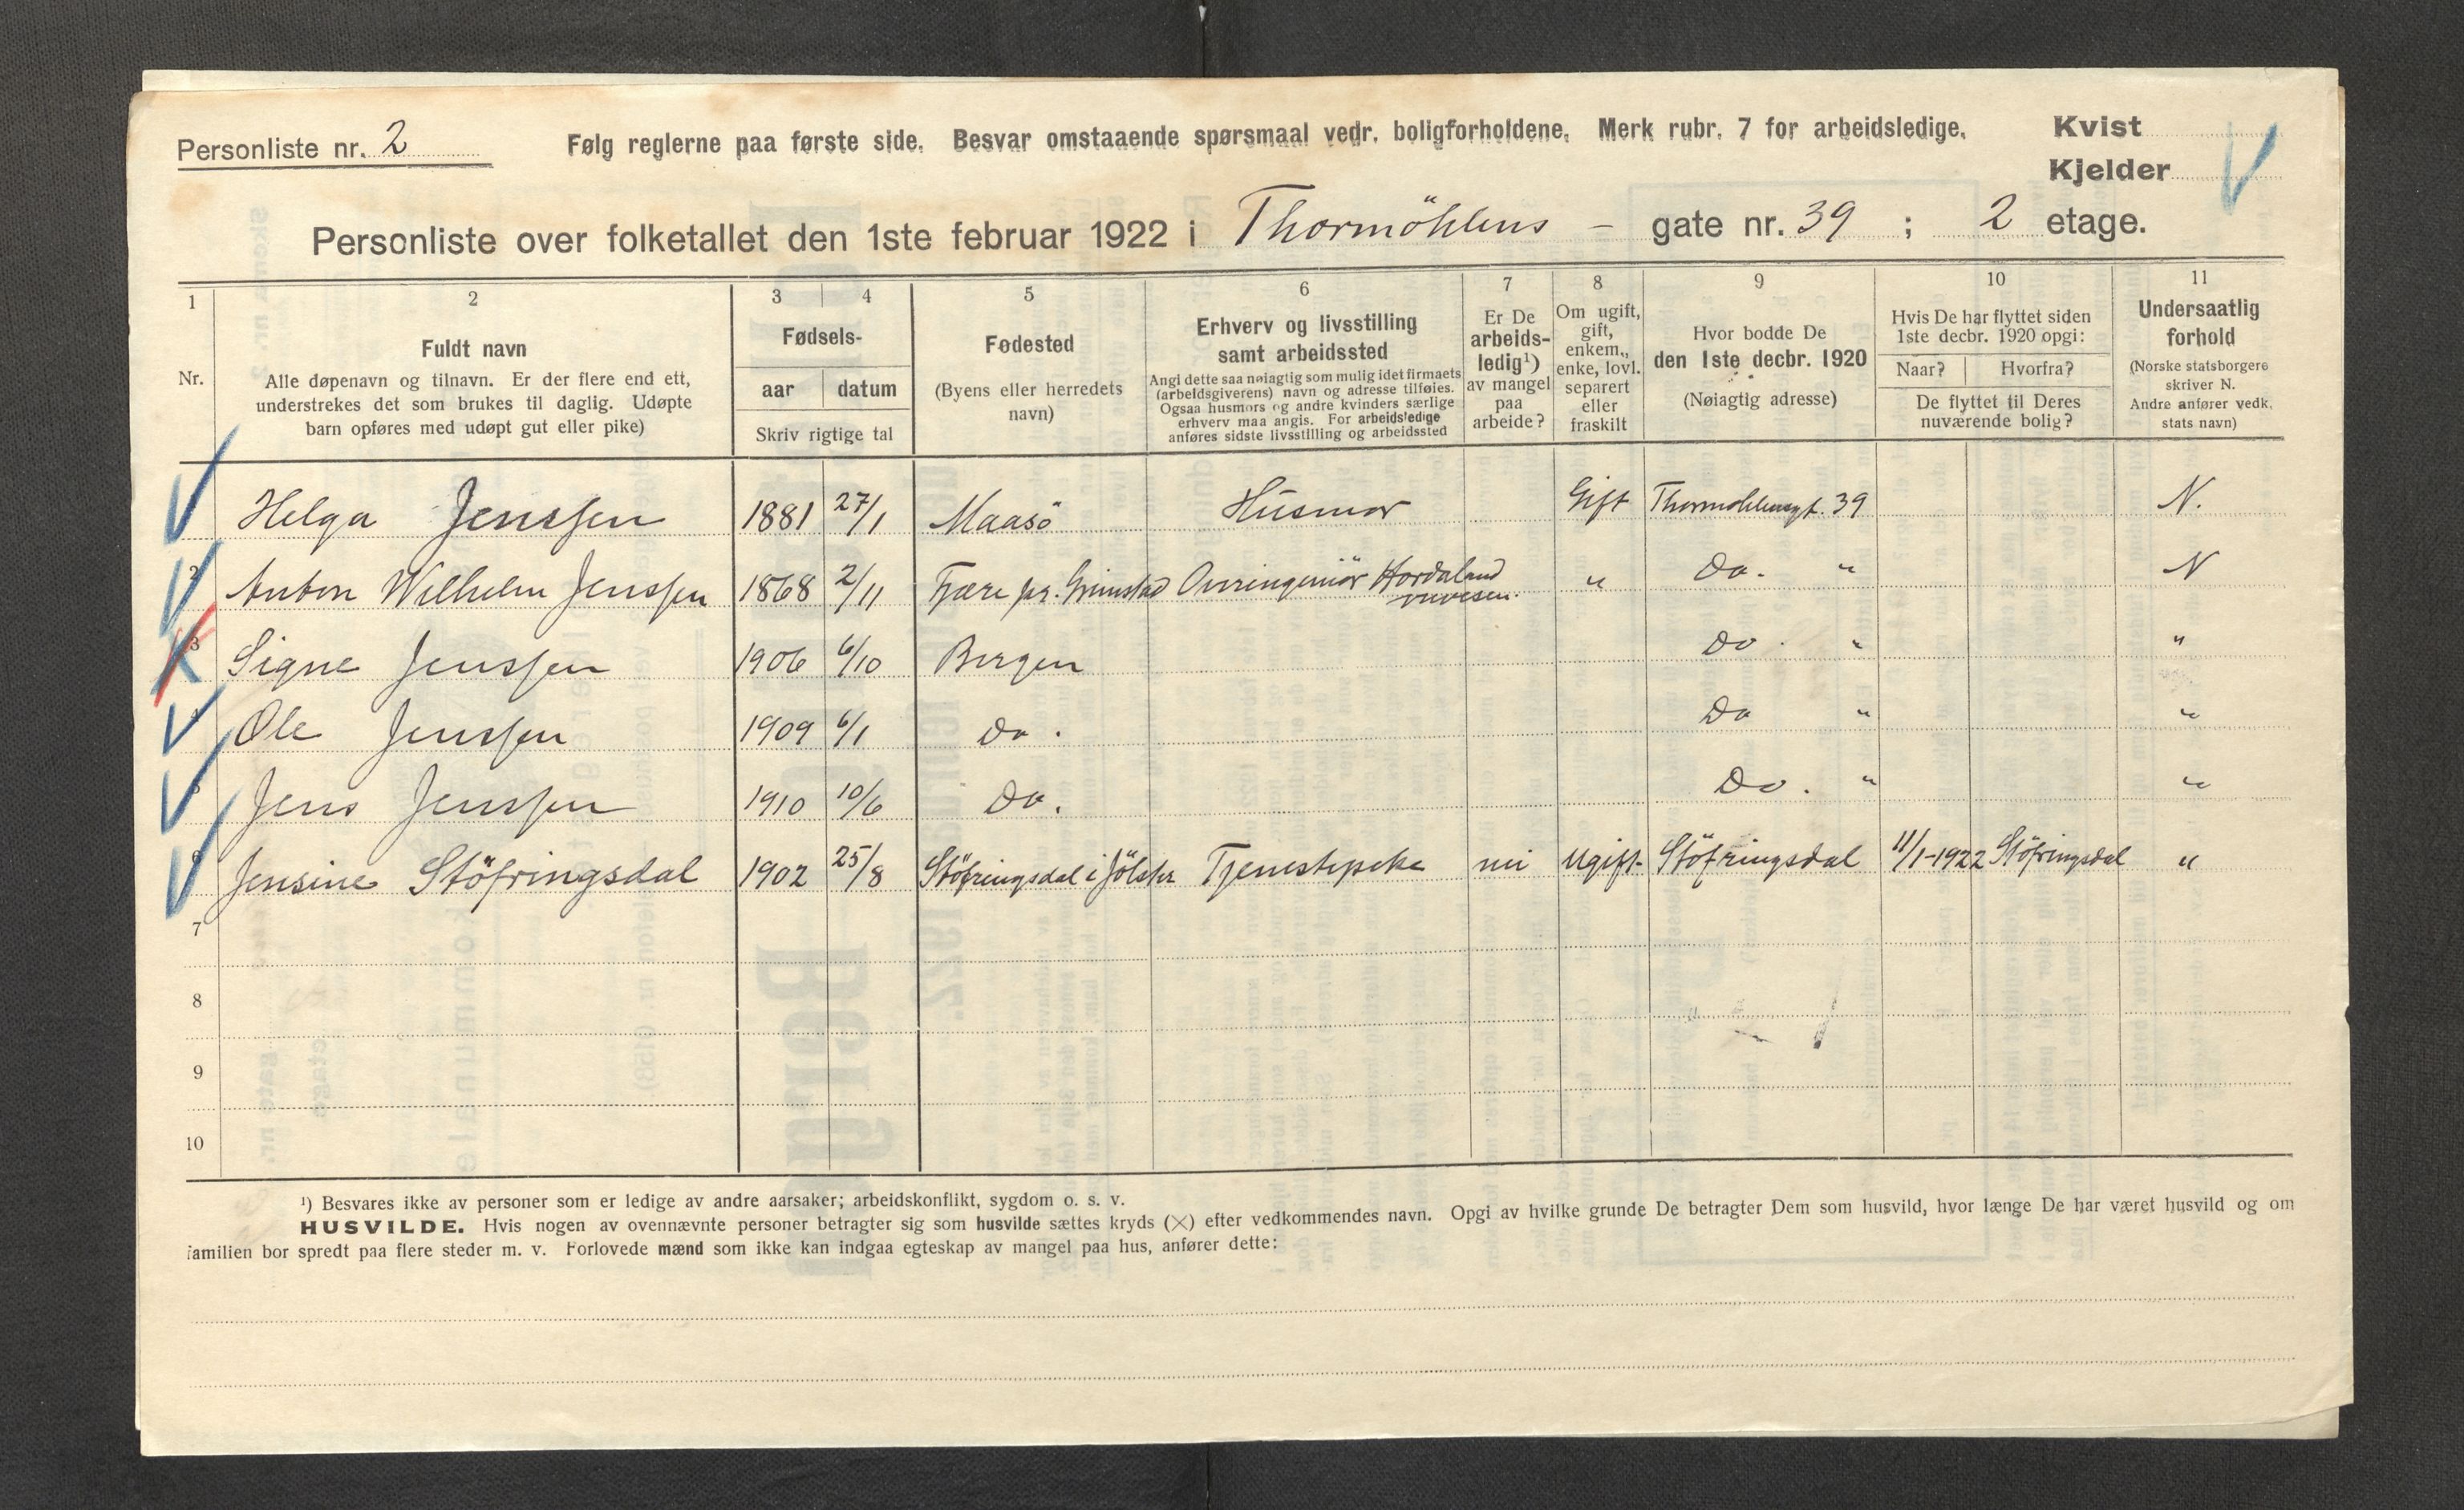 Personliste nr. 2
Følg reglerne paa første side. Besvar omstaaende spørsmaal vedr. boligforholdene. Merk rubr. 7 for arbeidsledige.
Kvist
Kjelder
Personliste over folketallet den 1ste februar 1922 i Thormöhlens - gate nr. 39 ; 2 etage.
1 2 3 4 5 6 7 8 9 10 11
Nr.
Fuldt navn
Alle døpenavn og tilnavn. Er der flere end ett,
understrekes det som brukes til daglig. Udøpte
barn opføres med udøpt gut eller pike)
Fødsels-
aar datum
Skriv rigtige tal
Fødested
(Byens eller herredets
navn)
Erhverv og livsstilling
samt arbeidssted
Angi dette saa nøiagtig som mulig idet firmaets
(arbeidsgiverens) navn og adresse tilføies.
Ogsaa husmors og andre kvinders særlige
erhverv maa angis. For arbeidsledige
anføres sidste livsstilling og arbeidssted
Er De
arbeids-
ledig¹)
av mangel
paa
arbeide?
Om ugift,
gift,
enkem.,
enke, lovl.
separert
eller
fraskilt
Hvor bodde De
den 1ste decbr. 1920
(Nøiagtig adresse)
Hvis De har flyttet siden
1ste decbr. 1920 opgi:
Naar? Hvorfra?
De flyttet til Deres
nuværende bolig?
Undersaatlig
forhold
(Norske statsborgere
skriver N.
Andre anfører vedk.
stats navn)
Helga Jenssen 1881 27/1 Maasö Husmor Gift Thormöhlensgt. 39 N.
2 Anton Wilhelm Jenssen 1868 2/11 Fjære pr. Grimstad Overingeniör Hordaland
veivesen. " Do. " N
3 Signe Jenssen 1906 6/10 Bergen Do. " "
4 Ole Jenssen 1909 6/1 Do. Do " "
5 Jens Jenssen 1910 10/6 Do. Do. " "
6 Jensine Stöfringsdal 1902 25/8 Stöfringsdal i Jölster Tjenestepike nei Ugift Stöfringsdal 11/1-1922 Stöfringsdal "
7
8
9
10
¹) Besvares ikke av personer som er ledige av andre aarsaker; arbeidskonflikt, sygdom o. s. v.
HUSVILDE. Hvis nogen av ovennævnte personer betragter sig som husvilde sættes kryds (×) efter vedkommendes navn. Opgi av hvilke grunde De betragter Dem som husvild, hvor længe De har været husvild og om
familien bor spredt paa flere steder m. v. Forlovede mænd som ikke kan indgaa egteskap av mangel paa hus, anfører dette: